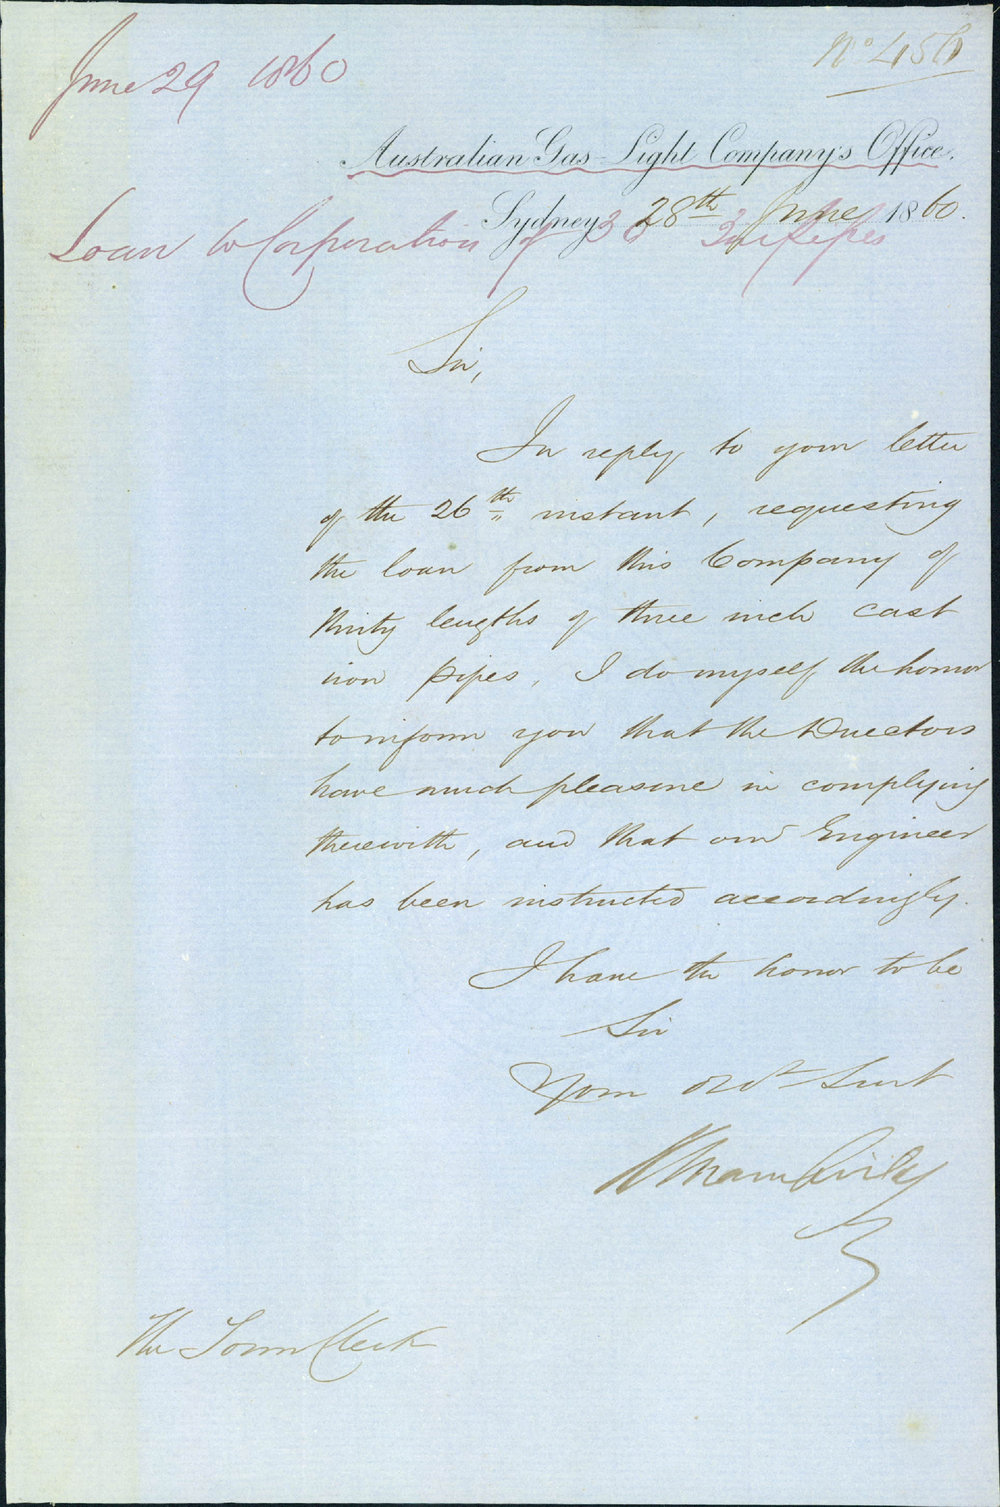 June 29 1860
No 456
Australian Gas-Light Company's Office.
Sydney 28th June 1860.
Loan to Corporation of 30 3 in Pipes
Sir,
In reply to your letter
of the 26th instant, requesting
the loan from this Company of
thirty lengths of three inch cast
iron pipes, I do myself the honor
to inform you that the Directors
have much pleasure in complying
therewith, and that our Engineer
has been instructed accordingly.
I have the honor to be
Sir
Your obdt Servt
The Town Clerk